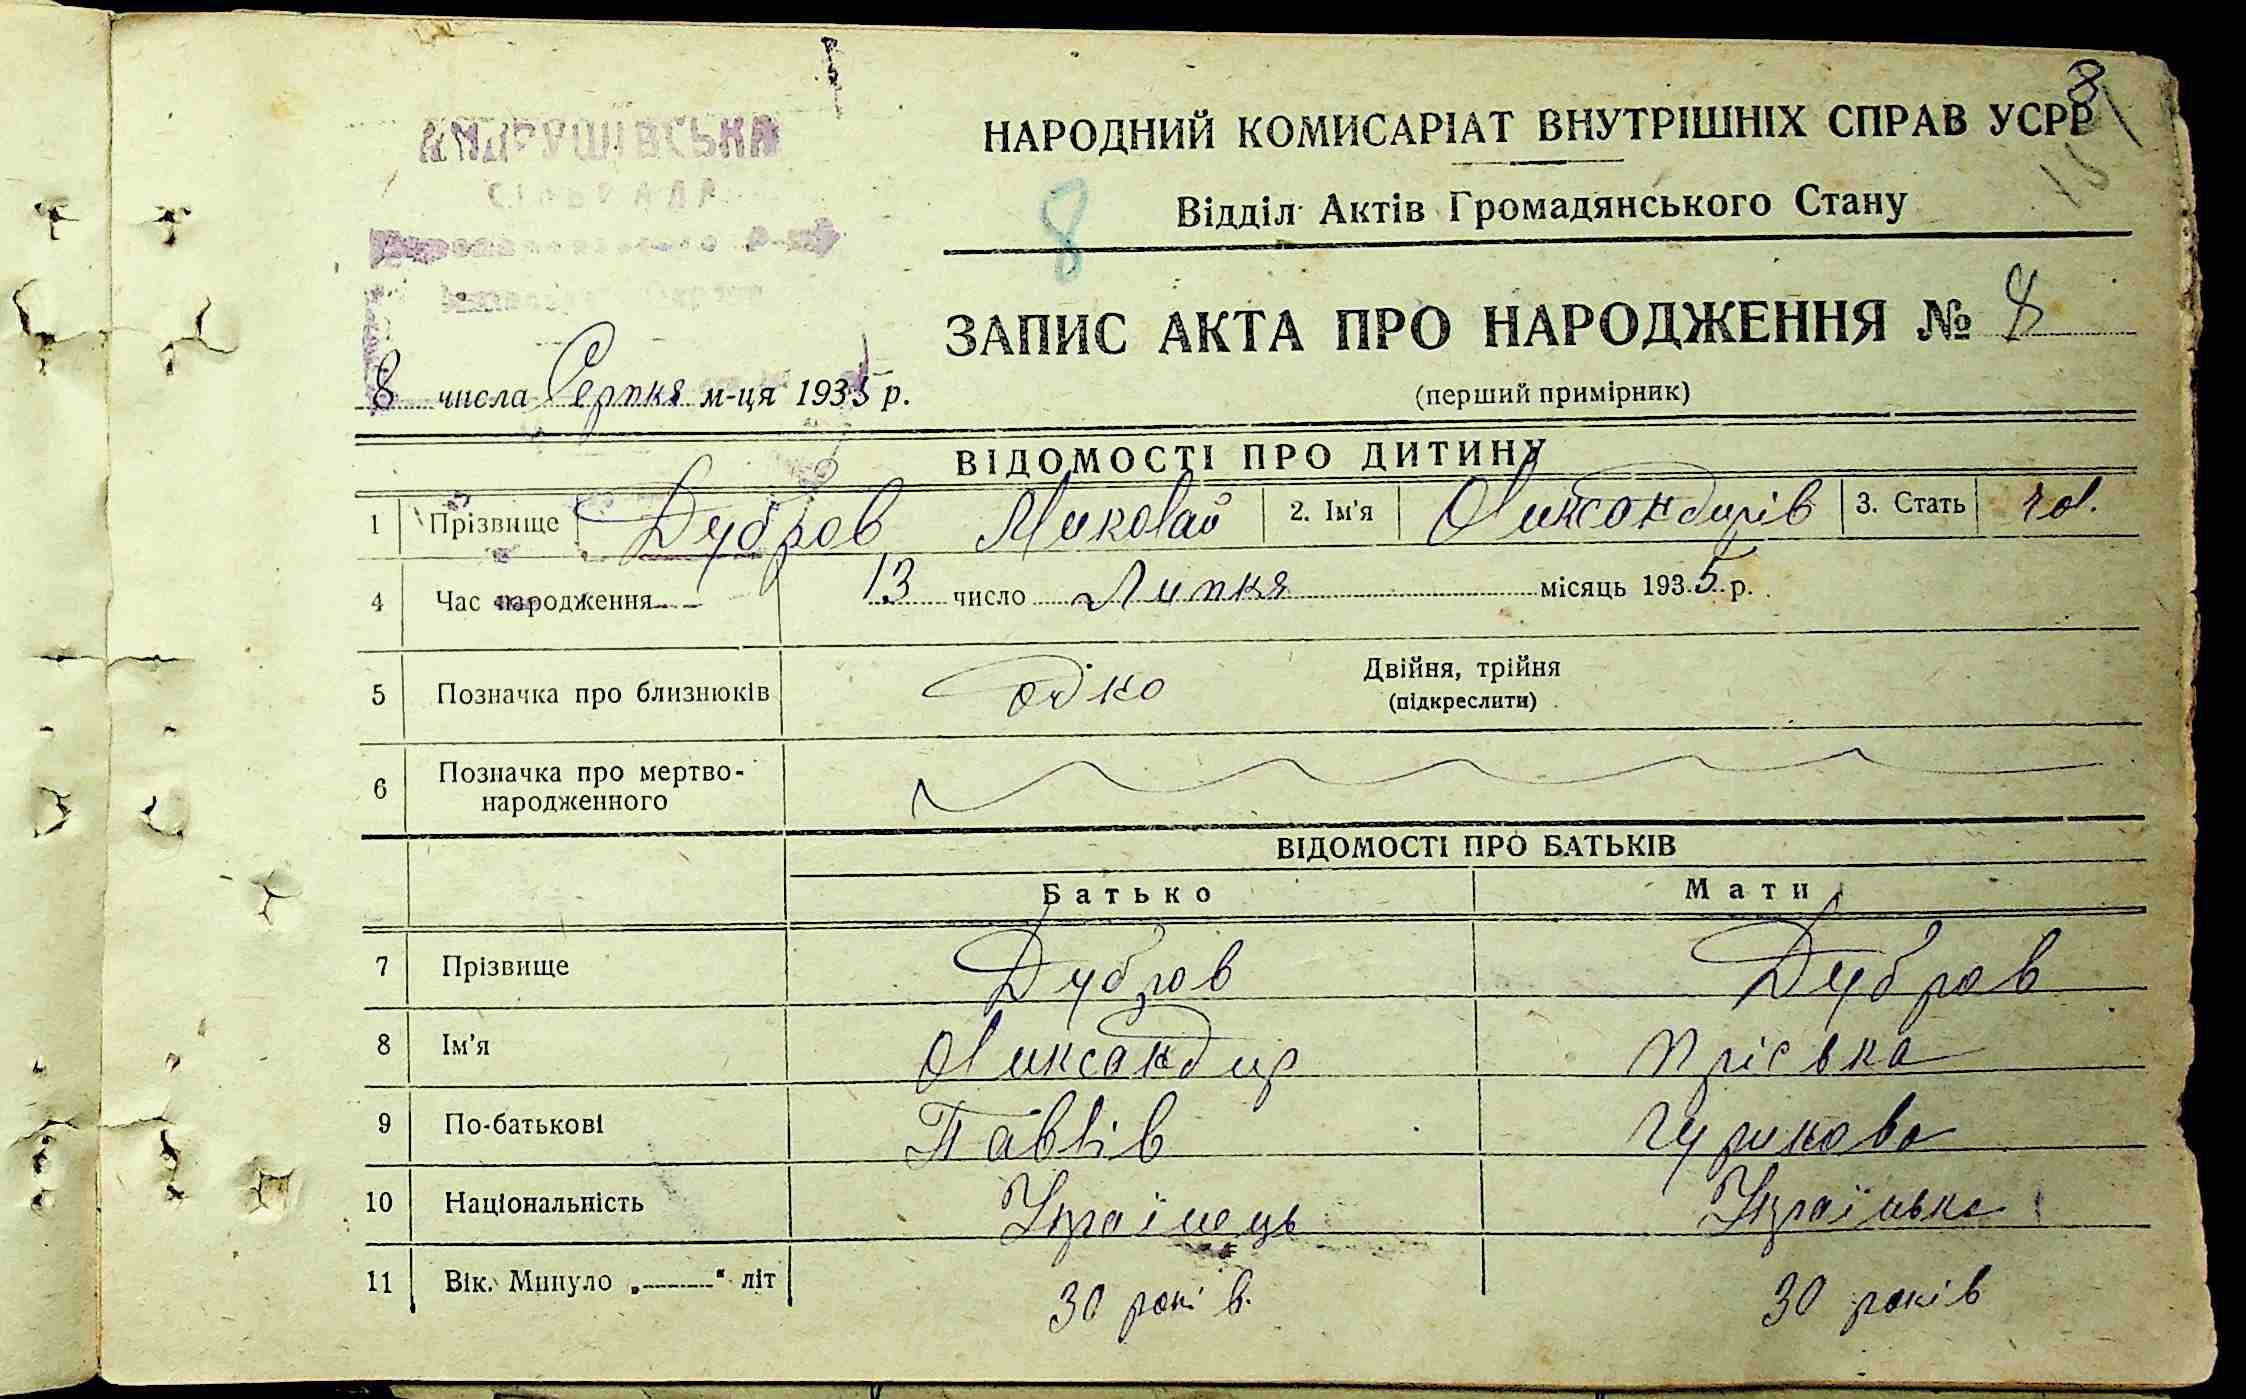 8
15
АНДРУШІВСЬКА
НАРОДНИЙ КОМИСАРІАТ ВНУТРІШНІХ СПРАВ УСРР
8
Відділ Актів Громадянського Стану
ЗАПИС АКТА ПРО НАРОДЖЕННЯ № 8
8 числа Серпня м-ця 1935 р.
(перший примірник)
ВІДОМОСТІ ПРО ДИТИНУ
1 Прізвище Дубров Миколай 2. Ім'я Оликсандирів 3. Стать чол.
4 Час народження 13 число Липня місяць 1935 р.
5 Позначка про близнюків одно Двійня, трійня
(підкреслити)
6 Позначка про мертво-
народженного
ВІДОМОСТІ ПРО БАТЬКІВ
Батько Мати
7 Прізвище Дубров Дубров
8 Ім'я Оликсандир Пріська
9 По-батькові Павлів Гуринова
10 Національність Українець Українька
11 Вік. Минуло „ “ літ 30 років. 30 років